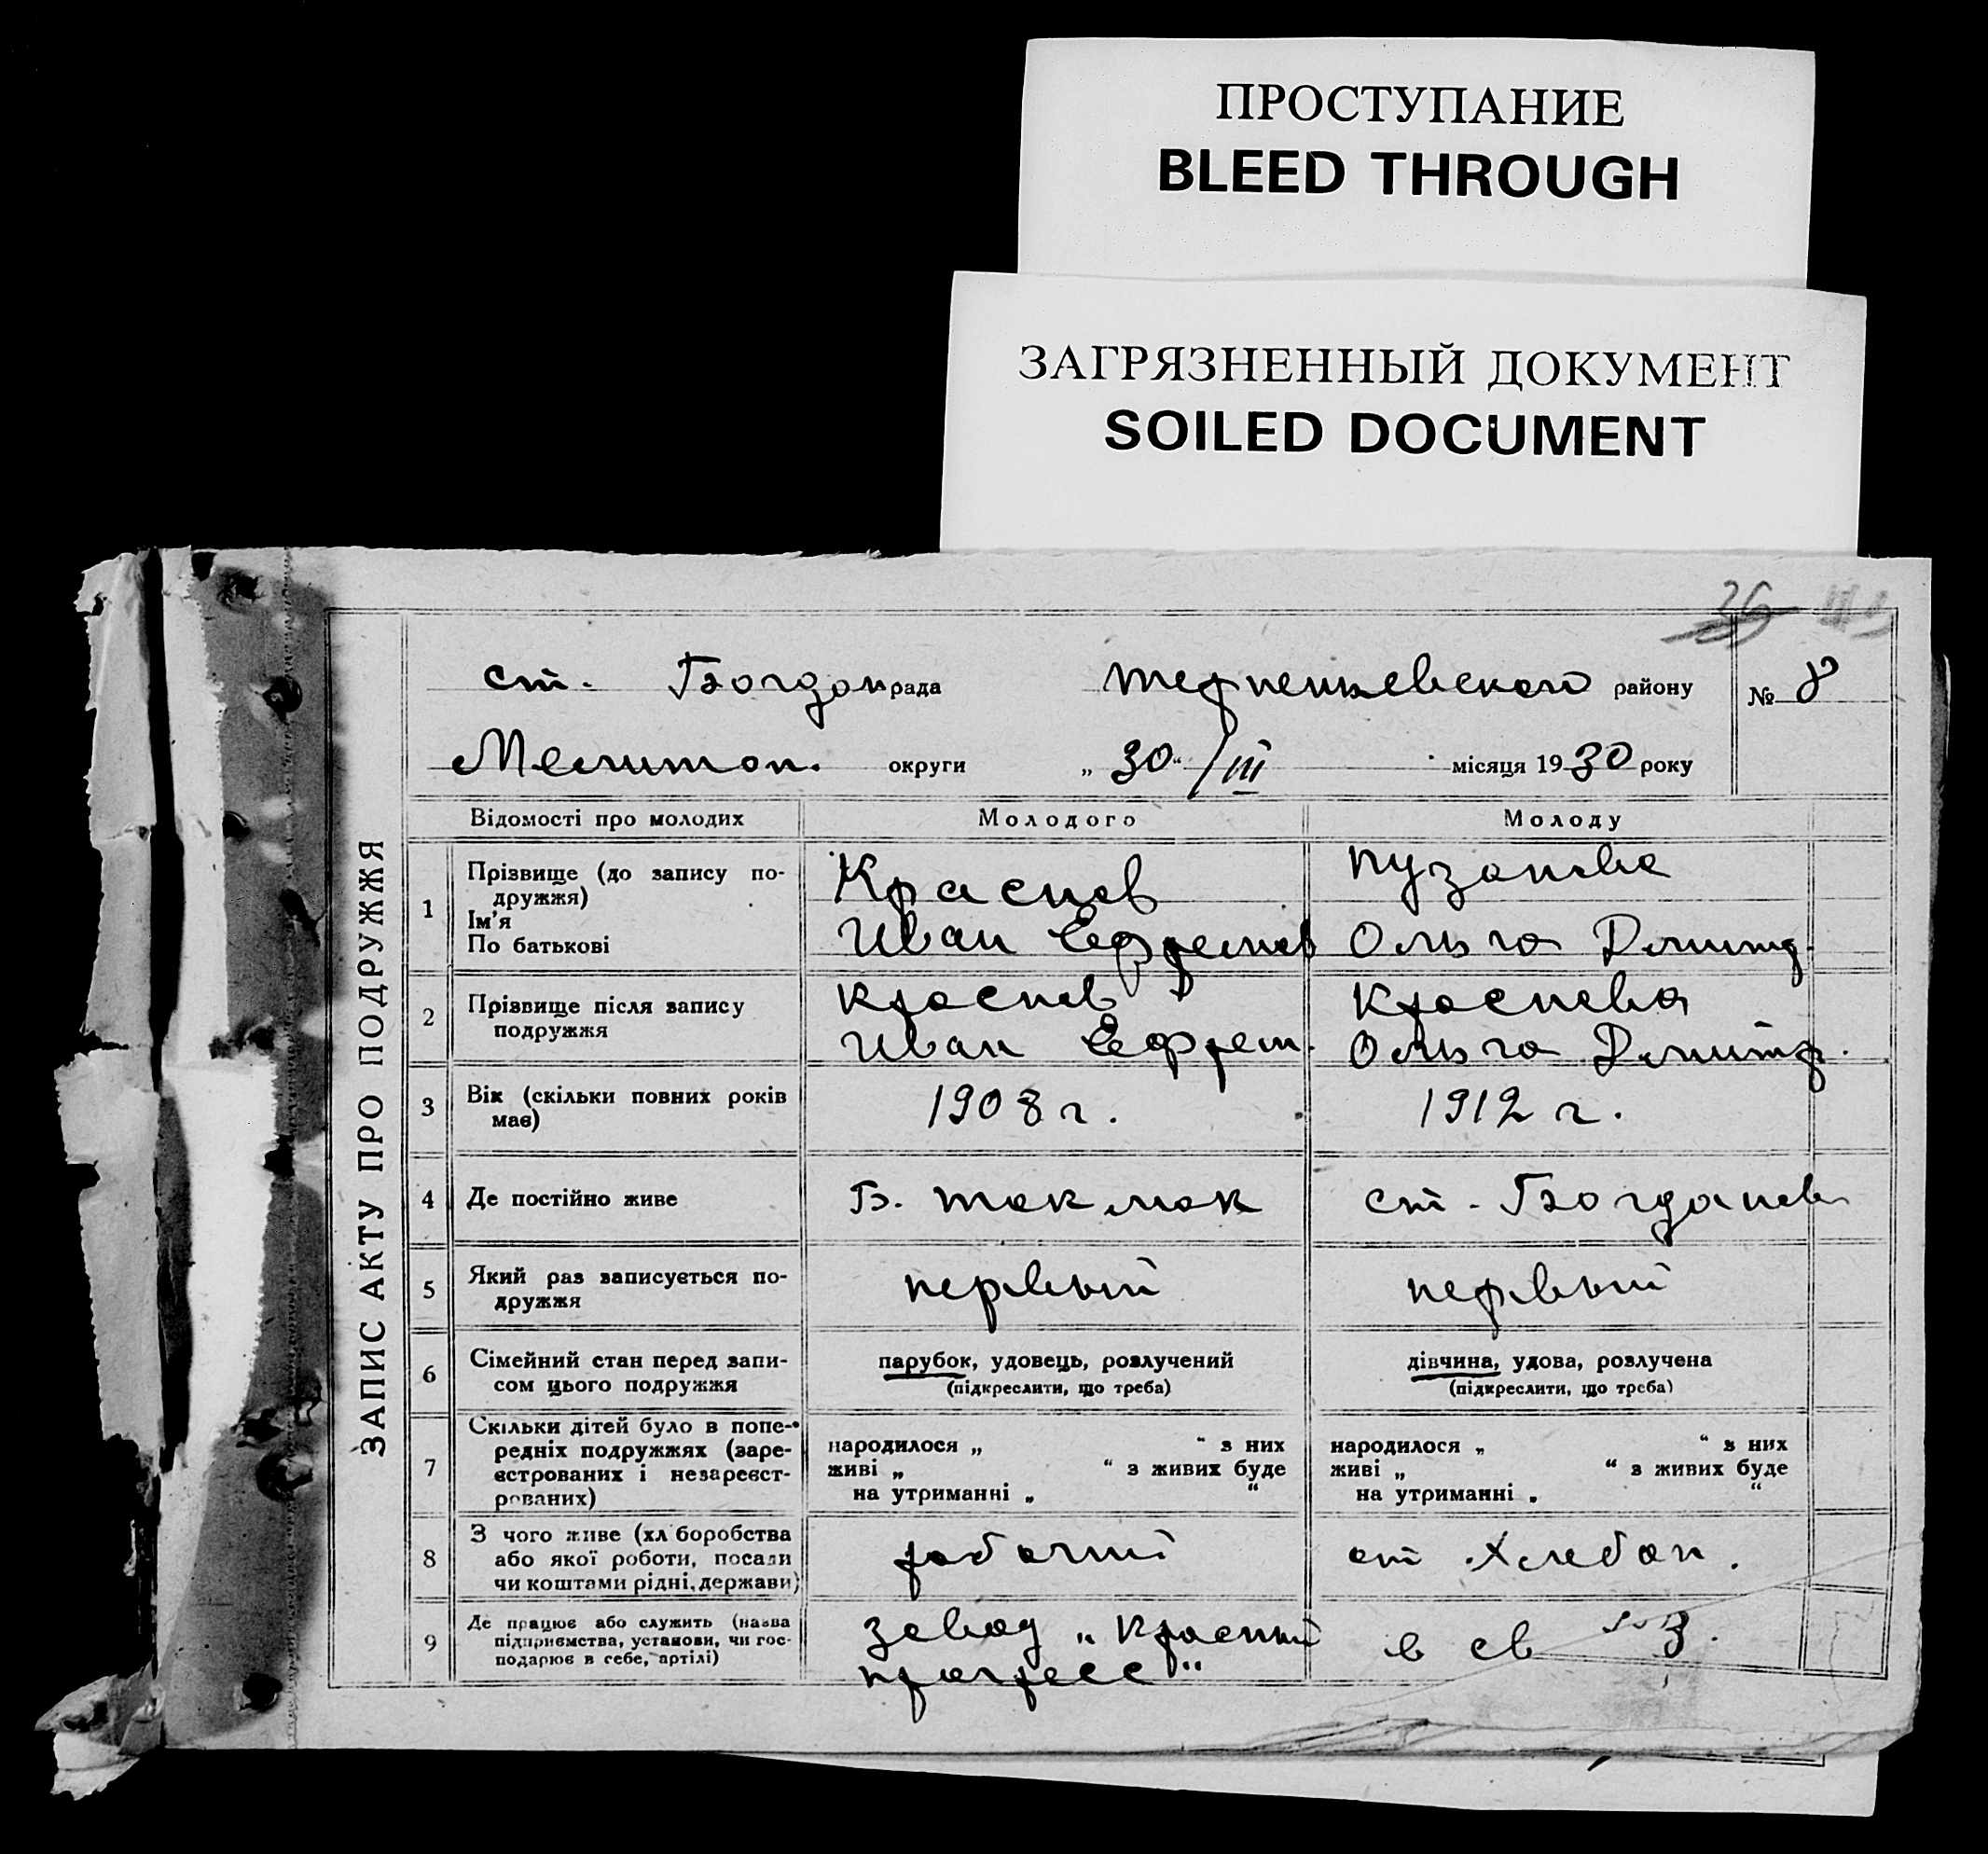 ПРОСТУПАНИЕ
BLEED THROUGH
ЗАГРЯЗНЕННЫЙ ДОКУМЕНТ
SOILED DOCUMENT
36
ЗАПИС АКТУ ПРО ПОДРУЖЖЯ
ст. Богдан рада района району № 8
Мелитоп. округи „30“/III місяця 1930 року
Відомості про молодих Молодого Молоду
1 Прізвище (до запису по-
дружжя)
Ім'я
По батькові
Краснов
Иван Ефремов
Пузанова
Ольга Дмитр.
2 Прізвище після запису
подружжя
Краснов
Иван Ефрем.
Краснова
Ольга Дмитр.
3 Вік (скільки повних років
має)
1908 г.
1912 г.
4 Де постійно живе
Б. Токмак
ст. Богданов
5 Який раз записується по-
дружжя
первый
первый
6 Сімейний стан перед запи-
сом цього подружжя
парубок, удовець, розлучений
(підкреслити, що треба)
дівчина, удова, розлучена
(підкреслити, що треба)
7 Скільки дітей було в попе-
редніх подружжях (заре-
єстрованих і незареєст-
рованих)
народилося „ “ з них
живі „ “ з живих буде
на утриманні „ “
народилося „ “ з них
живі „ “ з живих буде
на утриманні „ “
8 З чого живе (хліборобства
або якої роботи, посади
чи коштами рідні, держави)
рабочий
от хлебоп.
9 Де працює або служить (назва
підприємства, установи, чи гос-
подарює в себе, артілі)
завод „Красный
прогресс“
в св хоз.